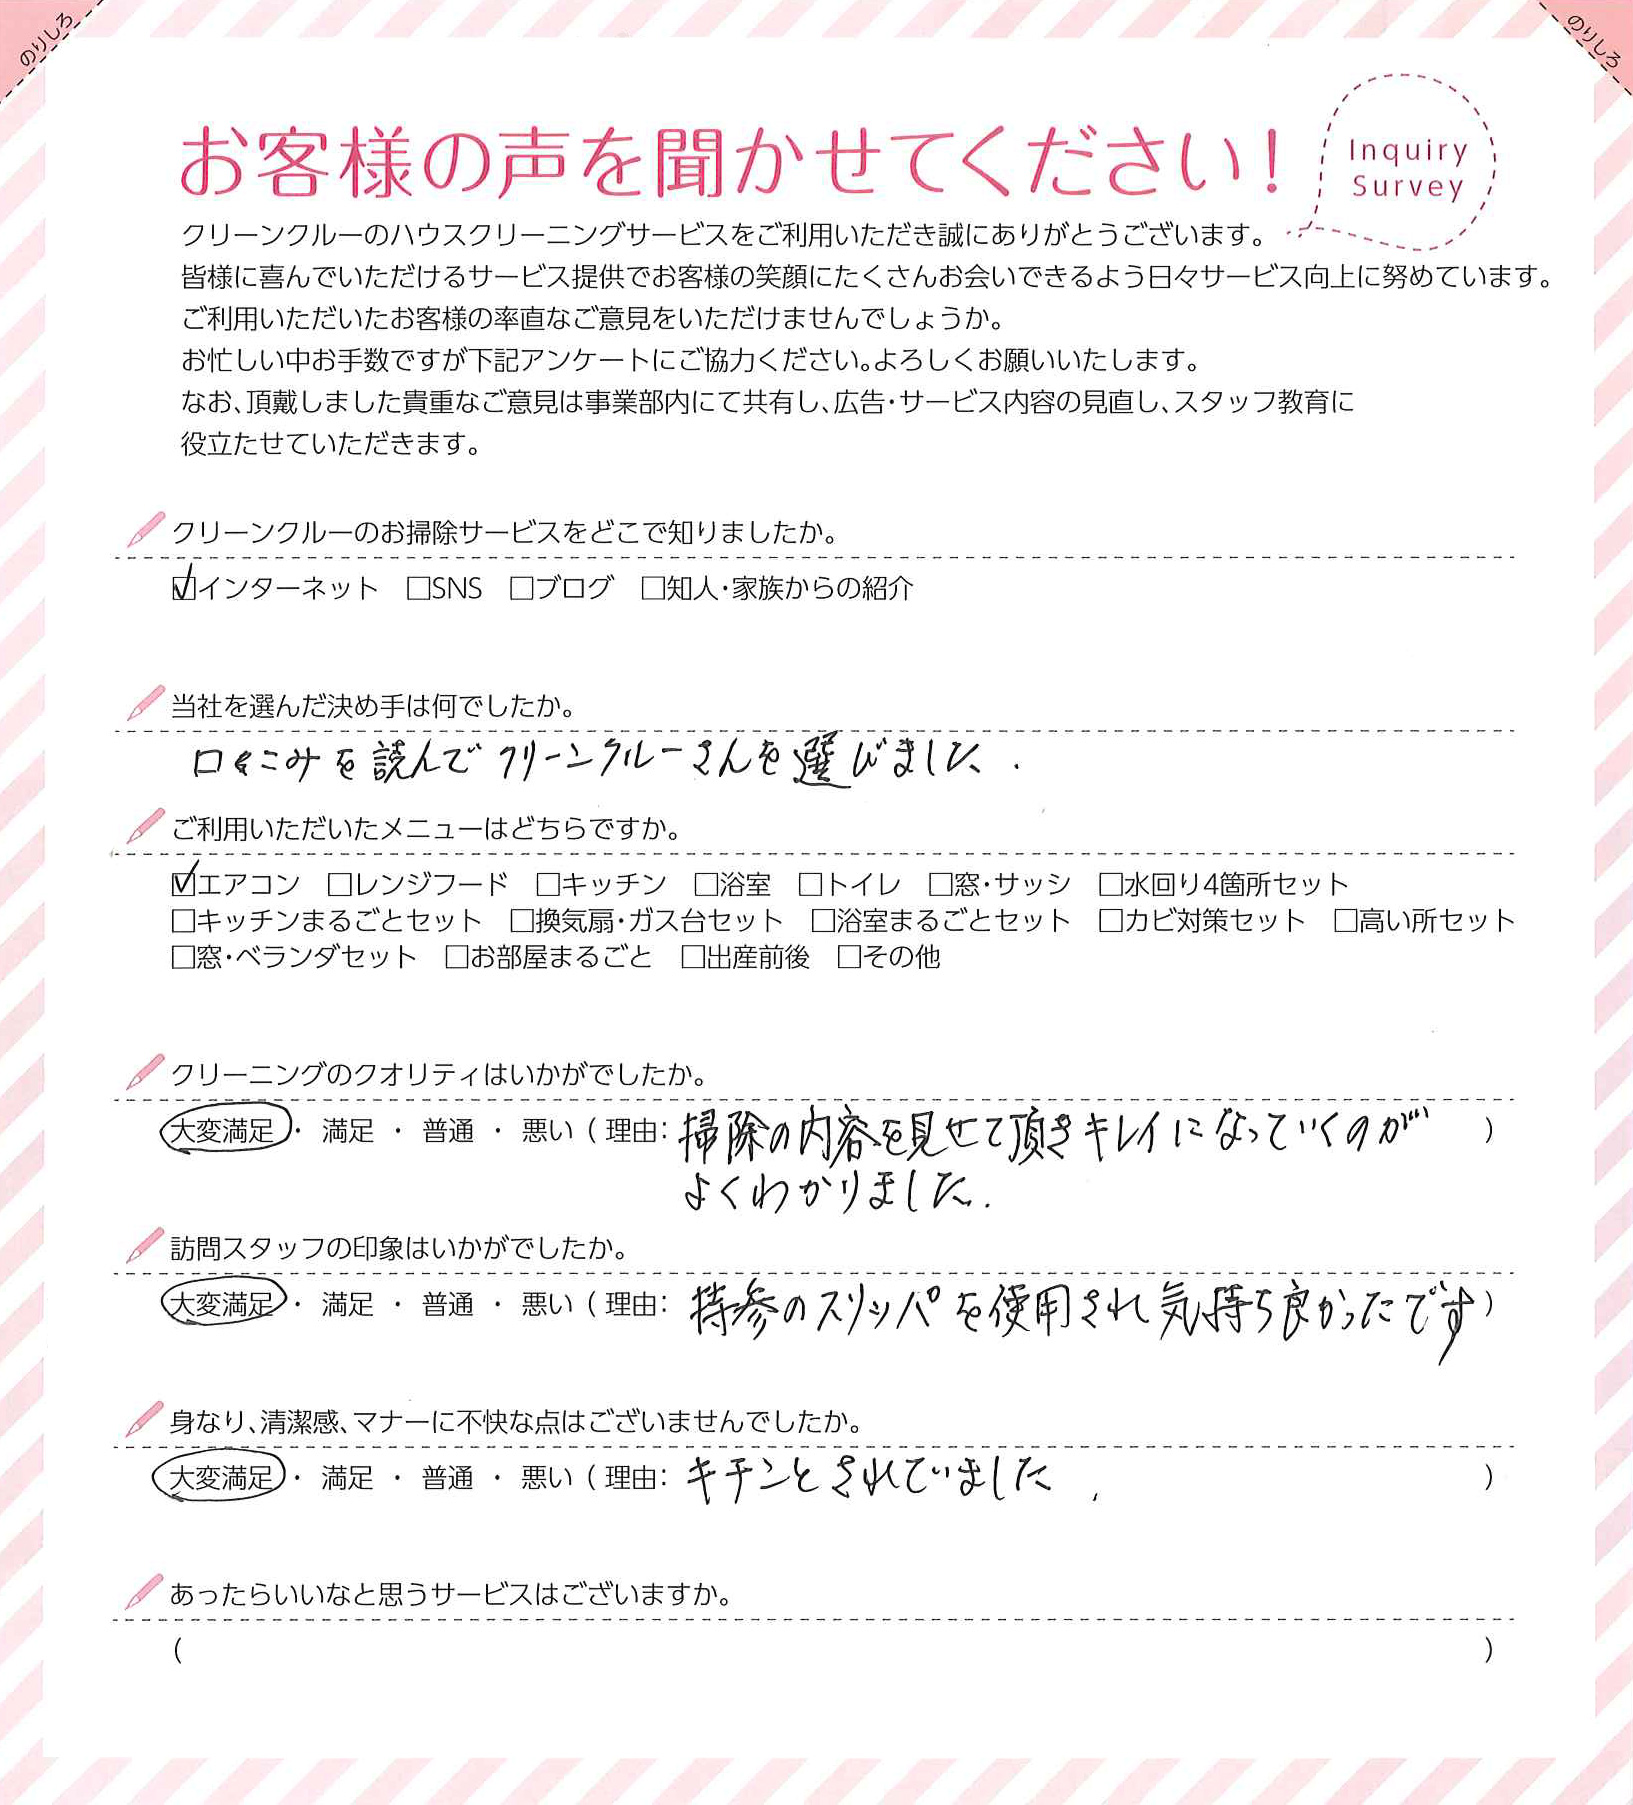 のりしろ
のりしろ
お客様の声を聞かせてください！
Inquiry
Survey
クリーンクルーのハウスクリーニングサービスをご利用いただき誠にありがとうございます。
皆様に喜んでいただけるサービス提供でお客様の笑顔にたくさんお会いできるよう日々サービス向上に努めています。
ご利用いただいたお客様の率直なご意見をいただけませんでしょうか。
お忙しい中お手数ですが下記アンケートにご協力ください。よろしくお願いいたします。
なお、頂戴しました貴重なご意見は事業部内にて共有し、広告・サービス内容の見直し、スタッフ教育に
役立たせていただきます。
クリーンクルーのお掃除サービスをどこで知りましたか。
☑インターネット □SNS □ブログ □知人・家族からの紹介
当社を選んだ決め手は何でしたか。
口々こみを読んでクリーンクルーさんを選びました.
ご利用いただいたメニューはどちらですか。
☑エアコン □レンジフード □キッチン □浴室 □トイレ □窓・サッシ □水回り4箇所セット
□キッチンまるごとセット □換気扇・ガス台セット □浴室まるごとセット □カビ対策セット □高い所セット
□窓・ベランダセット □お部屋まるごと □出産前後 □その他
クリーニングのクオリティはいかがでしたか。
大変満足 ・ 満足 ・ 普通 ・ 悪い ( 理由: 掃除の内容を見せて頂きキレイになっていくのが )
よくわかりました.
訪問スタッフの印象はいかがでしたか。
大変満足 ・ 満足 ・ 普通 ・ 悪い ( 理由: 持参のスリッパを使用され気持ち良かったです )
身なり、清潔感、マナーに不快な点はございませんでしたか。
大変満足 ・ 満足 ・ 普通 ・ 悪い ( 理由: キチンとされていました. )
あったらいいなと思うサービスはございますか。
( )